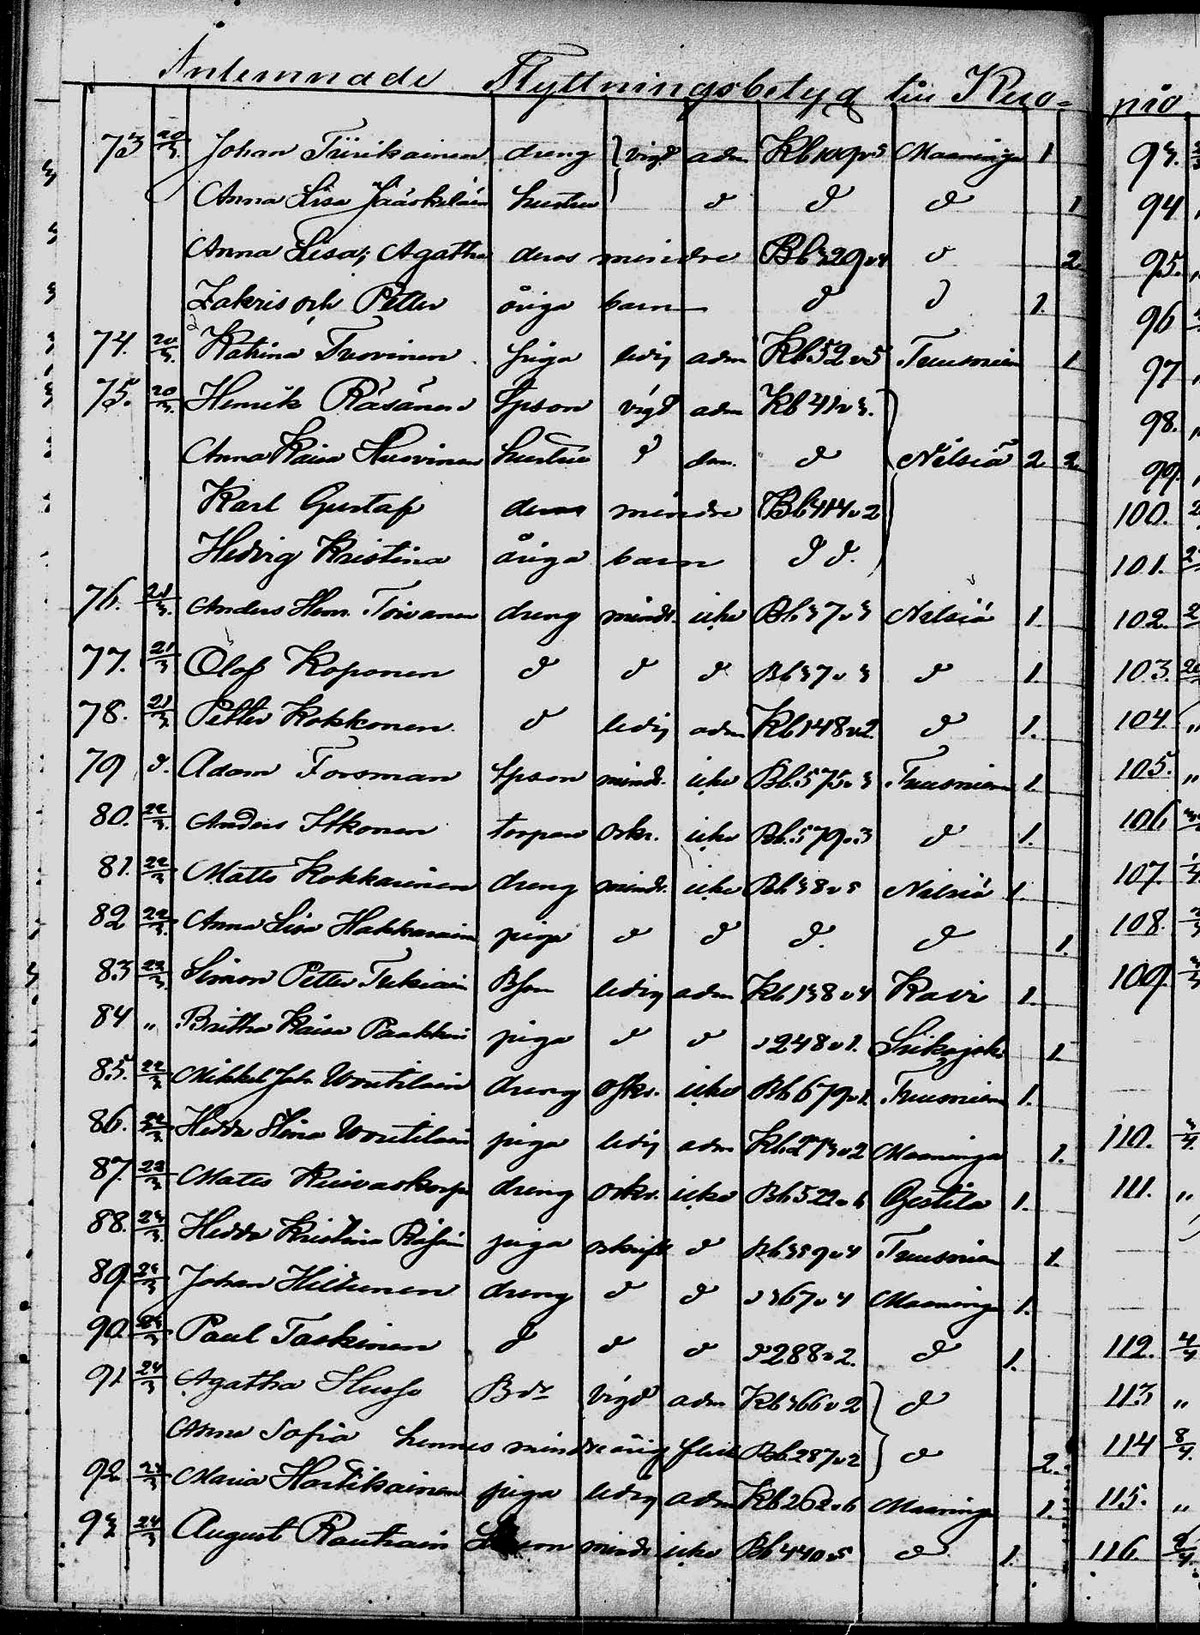 Antemnade Flyttningsbetyg till Kuo-
73 20/3. Johan Tiirikainen dreng vigd adm Kb109v3 Maaninga 1
Anna Lisa Jääskeläin hustru d d d 1
Anna Lisa, Agatha deras mindre Bb329v4 d 2
Zakris och Petter åriga barn d d 1.
74. 20/3. Katrina Tuovinen piga ledig adm Kb52v5 Tuusniemi 1
75. 20/3 Henrik Räsänen Spson vigd adm Kb41v3.
Anna Kaisa Huovinen hustru d dm. d Nilsiä 2 2
Karl Gustaf deras mindre Bb414v2
Hedvig Kristina åriga barn d d.
76. 21/3. Anders Henr. Toivanen dreng mindr. icke Bb37v3 Nilsiä 1.
77. 21/3 Olof Koponen d d d Bb37v3 d 1.
78. 21/3 Petter Kokkonen d ledig adm Kb148v2 d 1.
79 d. Adam Forsman Spson mindr. icke Bb575v3 Tuusniemi 1
80. 22/3. Anders Itkonen torpare oskr. icke Bb579v3 d 1.
81. 22/3 Matts Kokkarinen dreng mindr. icke Bb38v5 Nilsiä 1.
82 22/3. Anna Lisa Hakkarain piga d d d. d 1.
83 23/3 Simon Petter Tukiain Bson ledig adm Kb138v4 Kavi 1
84 „ Britha Kaisa Paakkin piga d d d 248v1. Siikajoki 1
85. 22/3 Mikkel Joh. Woutilain dreng ofkr. icke Bb679v1 Tuusniemi 1.
86. 22/3 Hedda Stina Woutilain piga ledig adm Kb273v2 Maaninga 1.
87. 22/3 Mats Kuivaskorp dreng oskr. icke Bb522v6 Gestila 1.
88. 24/3. Hedda Kristina Räsän piga oskrift d Bb359v4 Tuusniemi 1.
89. 24/3 Johan Hiltunen dreng d d d 367v4 Maaninga 1.
90. 24/3 Paul Taskinen d d d d 288v2. d 1.
91 24/3 Agatha Husso Bdr vigd adm Kb366v2 d
Anna Sofia hennes mindre årig flicka Bb287v2 d 2.
92. 24/3 Maria Hartikainen piga ledig adm Kb262v6 Maaninga 1.
93 24/3 August Rautiain mindr icke Bb440v5 d 1.
pio
93.
94
95.
96
97
98.
99.
100.
101.
102.
103.
104. „
105. „
106
107.
108.
109.
110. 3/4.
111. „
112. 4/4
113 „
114 8/4.
115. „
116. 9/4.